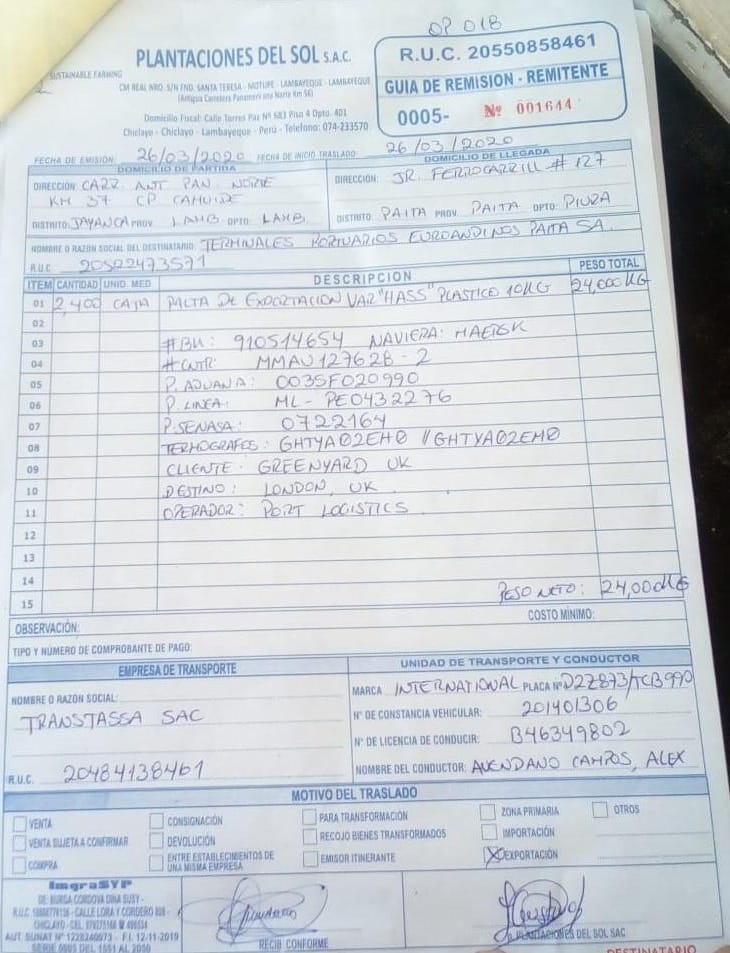 OP 018
SUSTAINABLE FARMING
PLANTACIONES DEL SOL S.A.C.
CM REAL NRO. S/N FND. SANTA TERESA - MOTUPE - LAMBAYEQUE - LAMBAYEQUE
(Antigua Carretera Panamericana Norte Km 56)
Domicilio Fiscal: Calle Torres Paz Nº 683 Piso 4 Dpto. 401
Chiclayo - Chiclayo - Lambayeque - Perú - Telefono: 074-233570
R.U.C. 20550858461
GUIA DE REMISION - REMITENTE
0005- Nº 001644
FECHA DE EMISIÓN: 26/03/2020 FECHA DE INICIO TRASLADO: 26/03/2020
DOMICILIO DE PARTIDA
DIRECCIÓN: CARR. ANT. PAN. NORTE
KM 37 CP CAHUIDE
DISTRITO: JAYANCA PROV. LAMB. DPTO: LAMB.
DOMICILIO DE LLEGADA
DIRECCIÓN: JR. FERROCARRILL # 127
DISTRITO: PAITA PROV. PAITA DPTO: PIURA
NOMBRE O RAZÓN SOCIAL DEL DESTINATARIO: TERMINALES PORTUARIOS EUROANDINOS PAITA SA.
R.U.C. 20522473571
ITEM CANTIDAD UNID. MED DESCRIPCION PESO TOTAL
01 2,400 CAJA PALTA DE EXPORTACION VAR "HASS" PLASTICO 10KG 24,000KG
02
03 #BK: 910514654 NAVIERA: MAERSK
04 #CNTR: MMAU127628-2
05 P. ADUANA: 0035F020990
06 P. LINEA: ML-PE0432276
07 P. SENASA: 0722164
08 TERMOGRAFOS: GHTYA02EH0 // GHTYA02EM0
09 CLIENTE: GREENYARD UK
10 DESTINO: LONDON, UK
11 OPERADOR: PORT LOGISTICS
12
13
14
15 PESO NETO: 24,000KG
OBSERVACIÓN: COSTO MÍNIMO:
TIPO Y NÚMERO DE COMPROBANTE DE PAGO:
EMPRESA DE TRANSPORTE
NOMBRE O RAZÓN SOCIAL:
TRANSTASSA SAC
R.U.C. 20484138461
UNIDAD DE TRANSPORTE Y CONDUCTOR
MARCA INTERNATIONAL PLACA Nº D2Z873/TCB990
Nº DE CONSTANCIA VEHICULAR: 201401306
Nº DE LICENCIA DE CONDUCIR: B46349802
NOMBRE DEL CONDUCTOR: AVENDANO CAMPOS, ALEX
MOTIVO DEL TRASLADO
VENTA CONSIGNACIÓN PARA TRANSFORMACIÓN ZONA PRIMARIA OTROS
VENTA SUJETA A CONFIRMAR DEVOLUCIÓN RECOJO BIENES TRANSFORMADOS IMPORTACIÓN
COMPRA ENTRE ESTABLECIMIENTOS DE UNA MISMA EMPRESA EMISOR ITINERANTE X EXPORTACIÓN
ImgraSYP
DE: BURGA CORDOVA DINA SUSY -
CALLE LORA Y CORDERO
CHICLAYO - CEL.
AUT. SUNAT Nº 1228240073 - F.I. 12-11-2019
SERIE 0005 DEL 1551 AL 2050
RECIBI CONFORME
PLANTACIONES DEL SOL SAC
DESTINATARIO